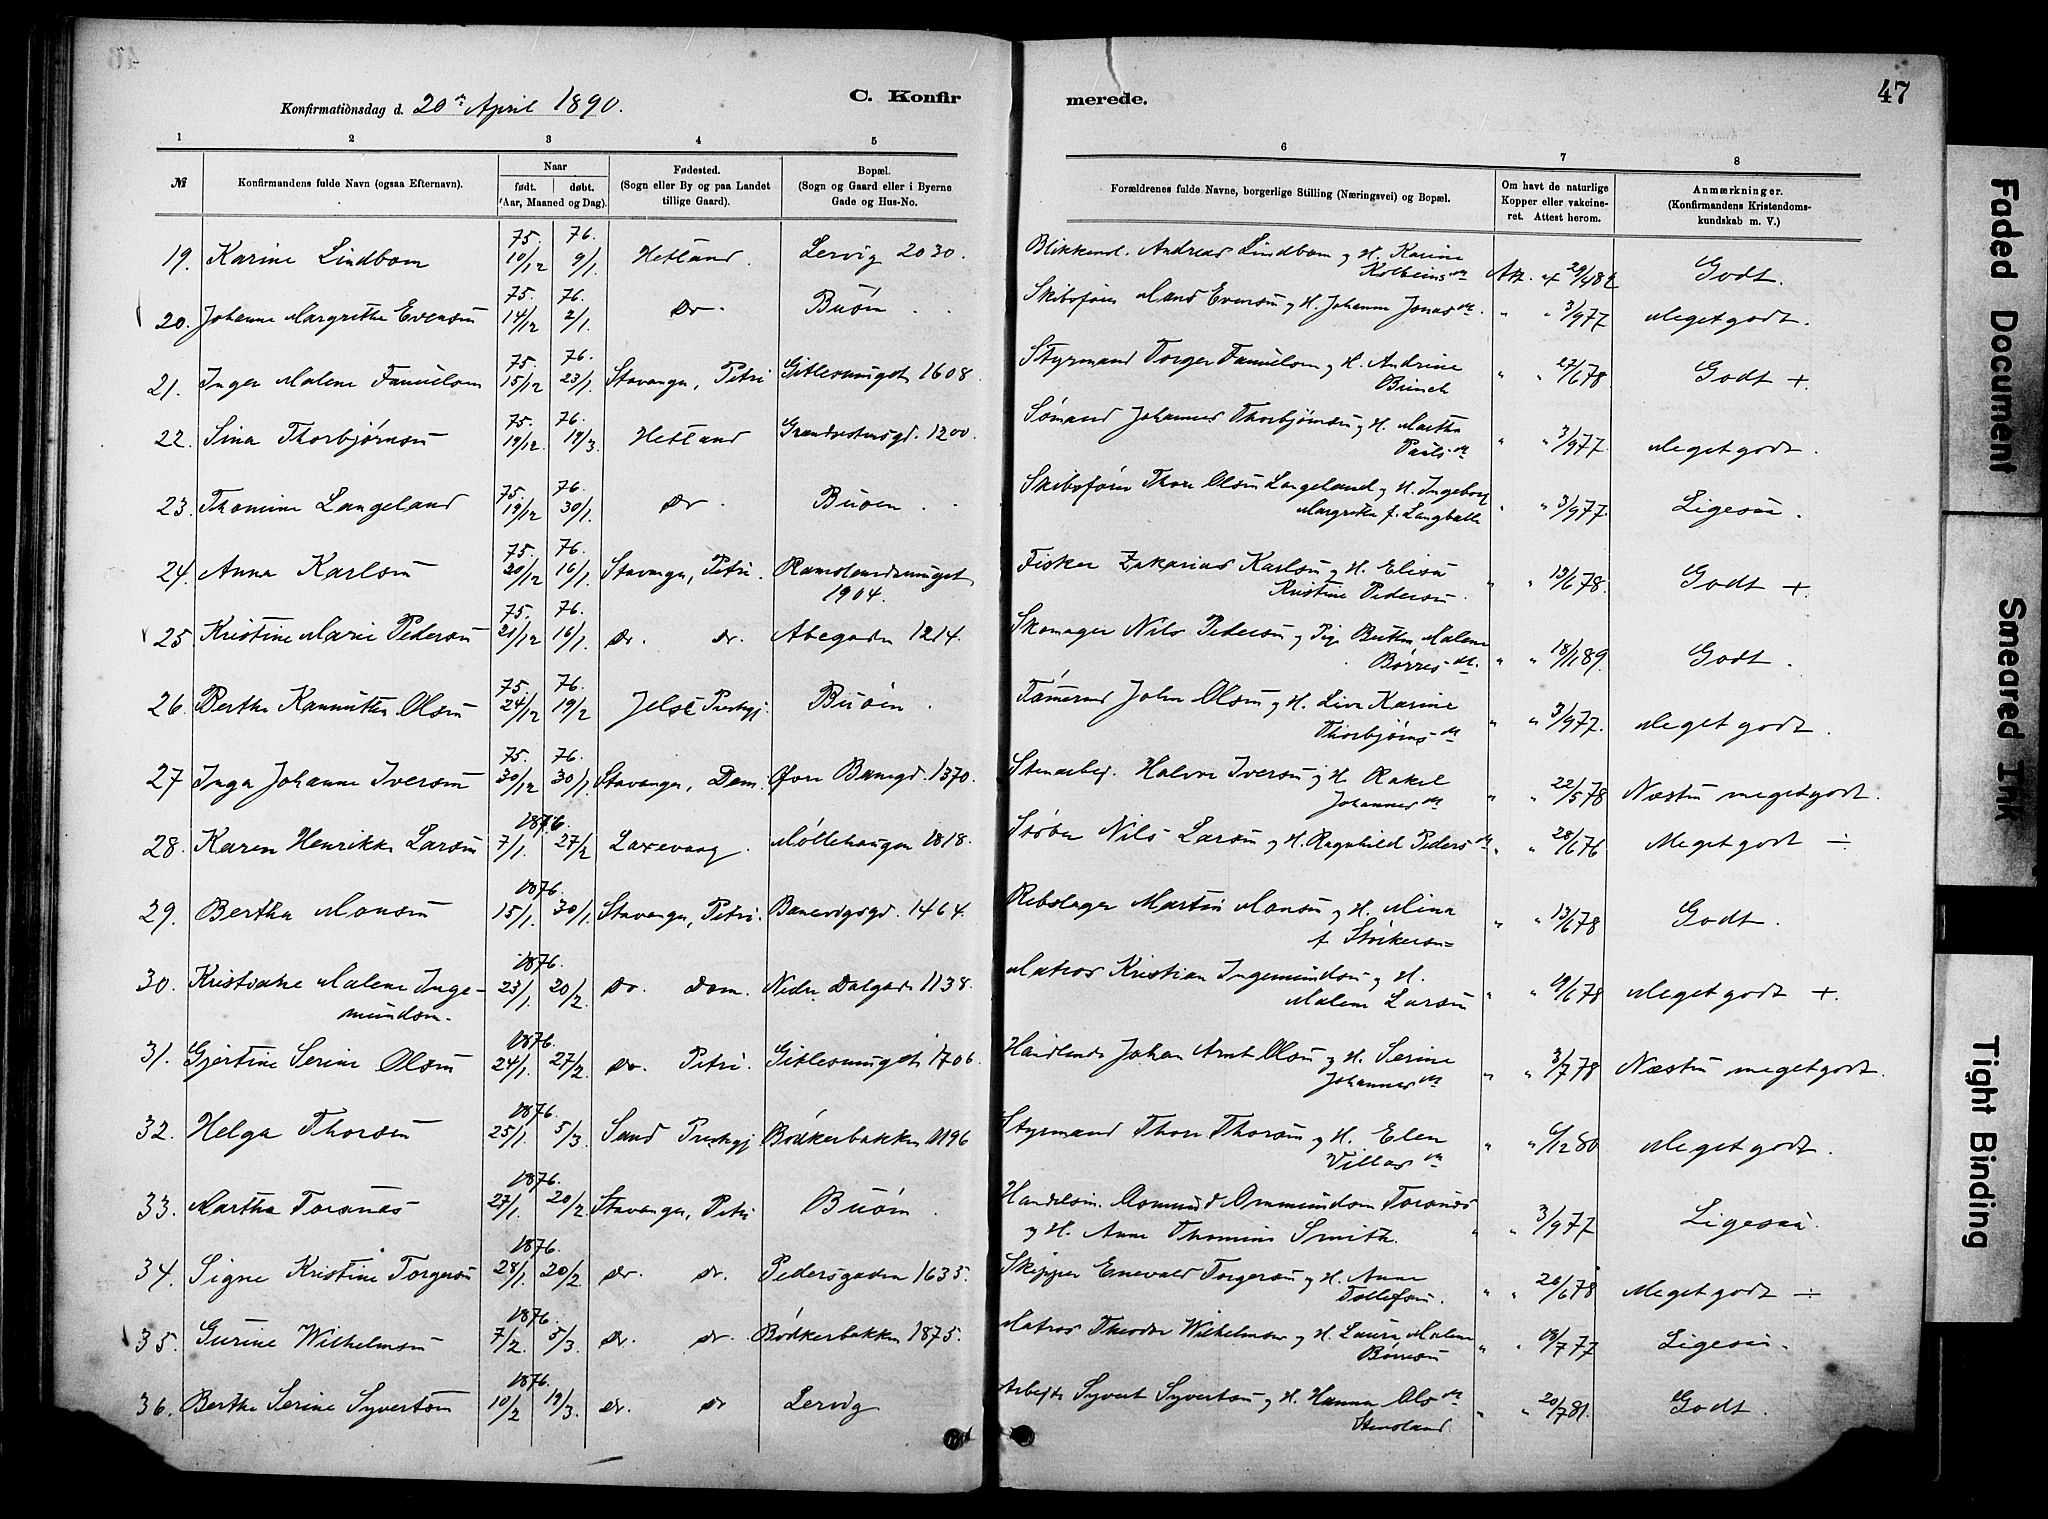 47
Konfirmationsdag d. 20de April 1890.
C. Konfirmerede.
1 2 3 4 5 6 7 8
№
Konfirmandens fulde Navn (ogsaa Efternavn).
Naar
født. døbt.
(Aar, Maaned og Dag).
Fødested.
(Sogn eller By og paa Landet
tillige Gaard).
Bopæl.
(Sogn og Gaard eller i Byerne
Gade og Hus-No.
Forældrenes fulde Navne, borgerlige Stilling (Næringsvei) og Bopæl.
Om havt de naturlige
Kopper eller vakcine-
ret. Attest herom.
Anmærkninger.
(Konfirmandens Kristendoms-
kundskab m. V.)
19. Karine Lindbom 75. 10/12 76. 9/1. Hetland. Lervig 2030. Blikkensl. Andreas Lindbom og H. Karine Kolbeinsdtr Att. af 29/4 82 Godt.
20. Johanne Margrethe Evensen 75. 14/12 76. 2/1. Do. Buøen. Skibsfører Mans Evensen og H. Johanne Jonasdtr. " " 3/9 77 Meget godt.
21. Inger Malene Famuelsen 75. 15/12 76. 23/1. Stavanger, Petri Gitlesmuget 1608. Styrmand Torger Famuelsen og H. Andrine Brinch " " 27/6 78 Godt +.
22. Sina Thorbjørnsen 75. 19/12. 76. 19/3. Hetland Grandvestensgd. 1200. Sømand Johannes Thorbjørnsen og H. Martha Pålsdtr " " 3/9 77. Meget godt.
23. Thomine Langeland 75. 19/12 76. 30/1. Do. Buøen. Skibsfører Thore Olsen Langeland og H. Ingeborg Margrethe f. Langballe " " 3/9 77. Ligesaa.
24. Anna Karlsen 75. 20/12 76. 16/1. Stavanger, Petri. Ramslandsmuget 1904. Fisker Zakarias Karlsen og H. Elisa Kristine Pedersen. " " 13/6 78. Godt +.
25. Kristine Marie Pedersen 75. 21/12 76. 16/1. Do. Do. Abegaden 1214. Skomager Nils Pedersen og Pige Berthe Malene Børresdtr. " " 18/1 89. Godt.
26. Berthe Kannutte Olsen 75. 24/12 76. 19/2 Jelse Prestegj. Buøen. Tømmermd John Olsen og H. Live Karine Thorbjørnsdtr " " 3/9 77. Meget godt.
27 Inga Johanne Iversen 75. 30/12 76. 30/1. Stavanger, Dom. Øvre Banegd. 1370. Stenarbej. Halvor Iversen og H. Rakel Johannesdtr " " 22/5 78 Næsten meget godt.
28. Karen Henrikke Larsen 1876. 7/1. 27/2 Laxevaag. Møllehaugen 1818. Støber Nils Larsen og H. Ragnhild Pedersdtr " " 28/6 76 Meget godt ÷
29. Bertha Monsen 1876. 15/1. 30/1. Stavanger, Petri. Banevigsgd. 1464. Rebslager Martin Monsen og H. Mina f. Størkersen= " " 13/6 78 Godt.
30. Kristvake Malene Ingemundsen. 1876. 23/1. 20/2. Do. Dom. Nedre Dalgade 1138. Matros Kristian Ingemundsen og H. Malene Larsen " " 19/6 78 Meget godt +.
31. Gjertine Serine Olsen 1876. 24/1. 27/2. Do. Petri. Gitlesmuget 1706. Handlende Johan Arnt Olsen og H. Serine Johannesdtr " " 3/7 78 Næsten meget godt.
32. Helga Thorsen 1876. 25/1. 5/3. Sand Prestegj Bødkerbakken 1196 Styrmand Thore Thorsen og H. Elen Villasdtr " " 6/12 80 Meget godt.
33. Martha Torsnes 1876. 27/1. 20/2 Stavanger, Petri Buøen. Handelsm. Osmund Ommundsen Torsnes og H. Anne Thomine Smith. " " 3/9 77 Ligesaa.
34. Signe Kristine Torgersen 1876. 28/1. 20/2. Do. Do. Pedersgaden 1635. Skipper Enevald Torgersen og H. Anne Tollefsen. " " 26/6 78 Meget godt ÷
35. Gurine Wilhelmsen 1876. 7/2. 5/3. Do. Do. Bødkerbakken 1875. Matros Theodor Wilhelmsen og H. Laura Malene Børresen " " 18/7 77 Ligesaa.
36. Berthe Serine Syvertsen 1876. 10/2 19/3. Do. Do Lervig Arbejder Syvert Syvertsen og H. Hanna Olsdtr Stensland. " " 20/7 81. Godt.
Faded Document
Smeared Ink
Tight Binding